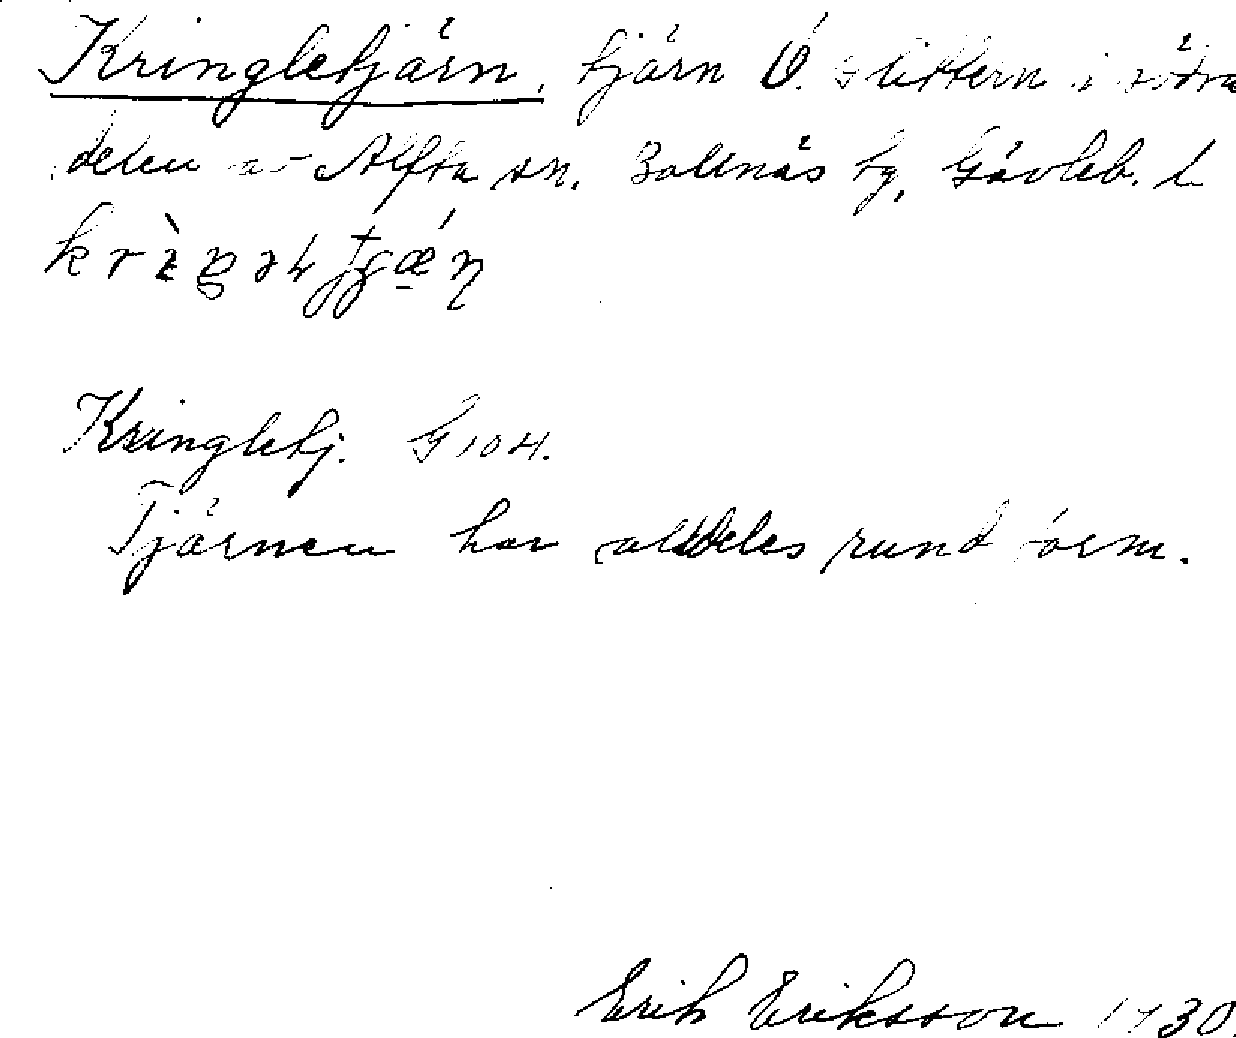 Kringletjärn, tjärn Ö. Glittern i södra
delen av Alfta sn. Bollnäs tg, Gävleb. l
Kringletj. G 104.
Tjärnen har alldeles rund form.
Erik Eriksson 1930.